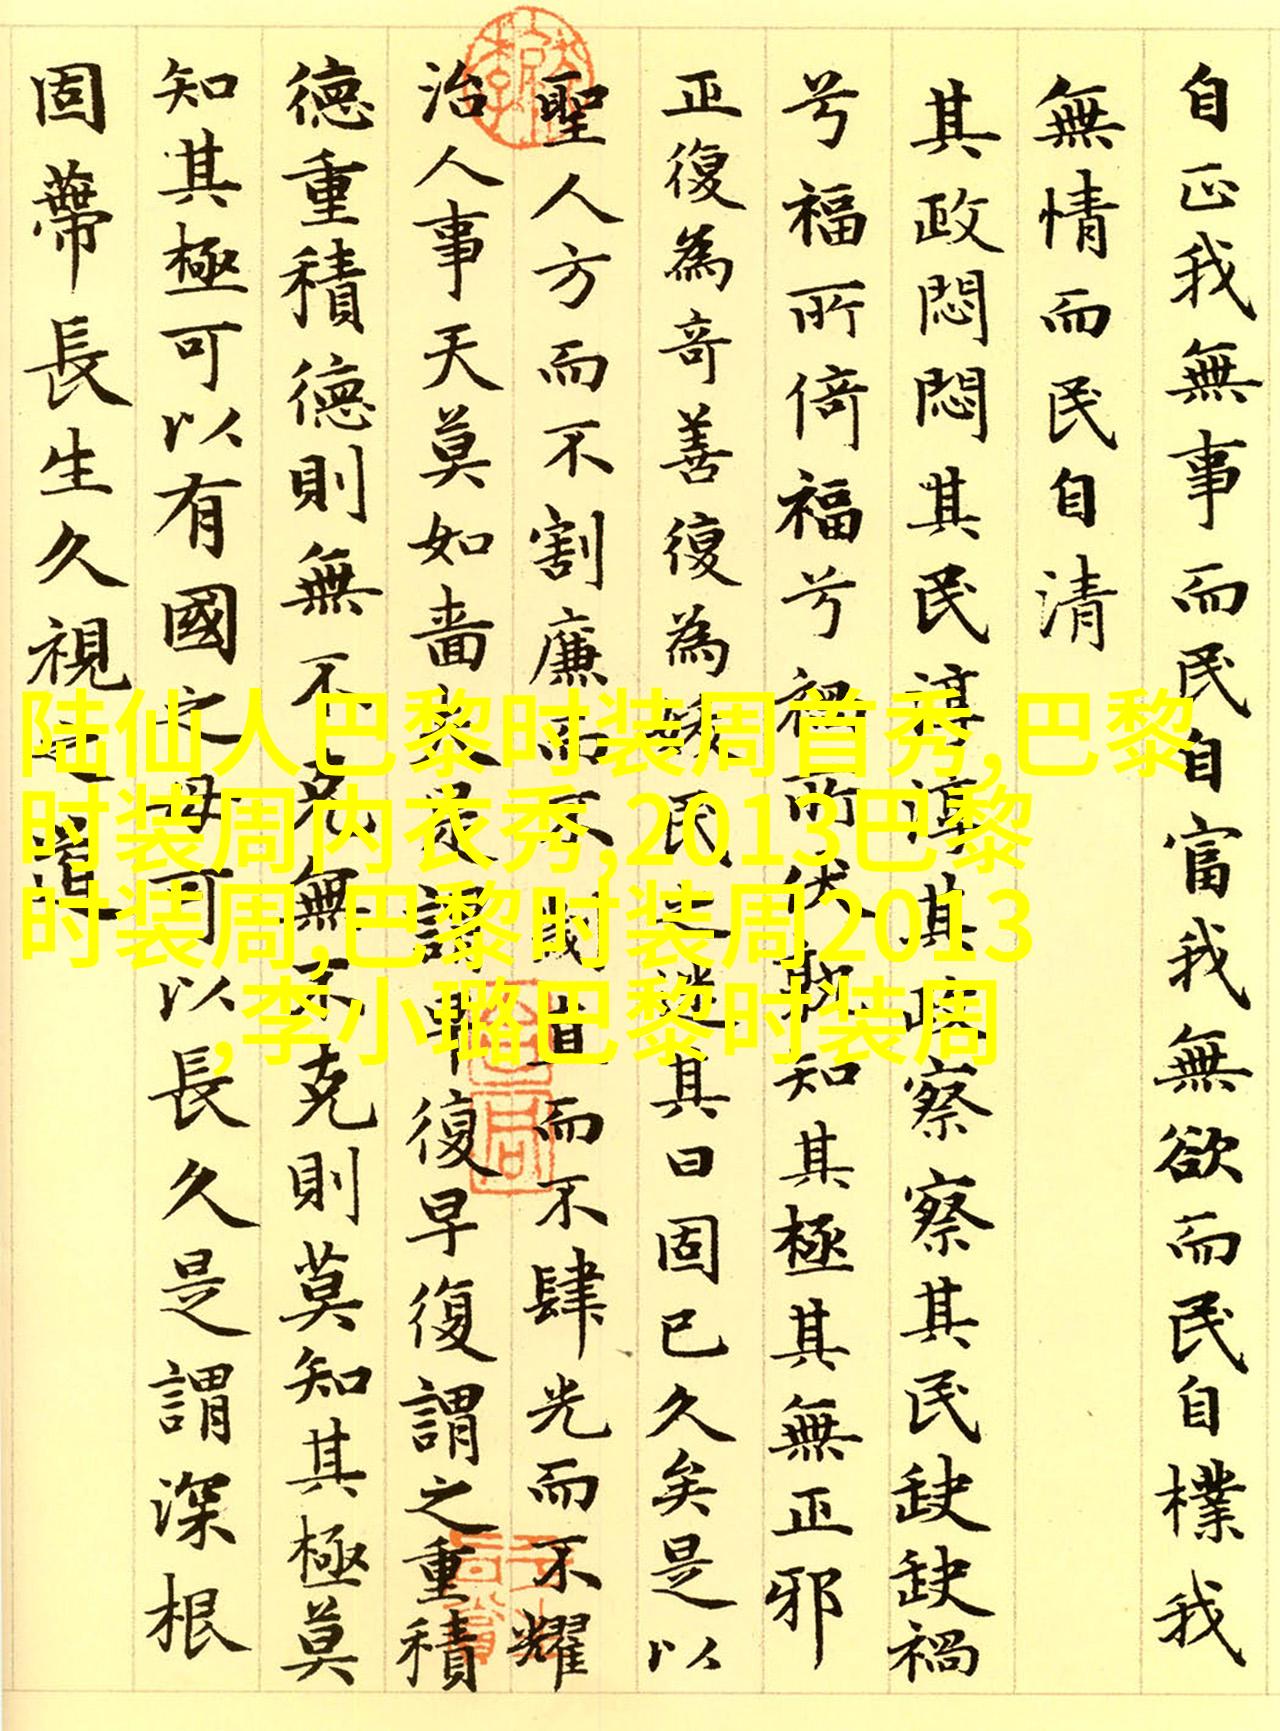 自正我無事而民自富我無欲而民自樸我
無情而民自清
其政悶悶其民淳淳其政察察其民缺缺禍
兮福所倚福兮禍所伏孰知其極其無正邪
正復為奇善復為妖民之迷其日固已久矣是以
聖人方而不割廉而不劌直而不肆光而不耀
治人事天莫如啬夫是謂早復早復謂之重積
德重積德則無不克無不克則莫知其極莫
知其極可以有國之母可以長久是謂深根
固蔕長生久視之道
陆仙人巴黎时装周首秀,巴黎
时装周内衣秀,2013巴黎
时装周,巴黎时装周2013
,李小璐巴黎时装周